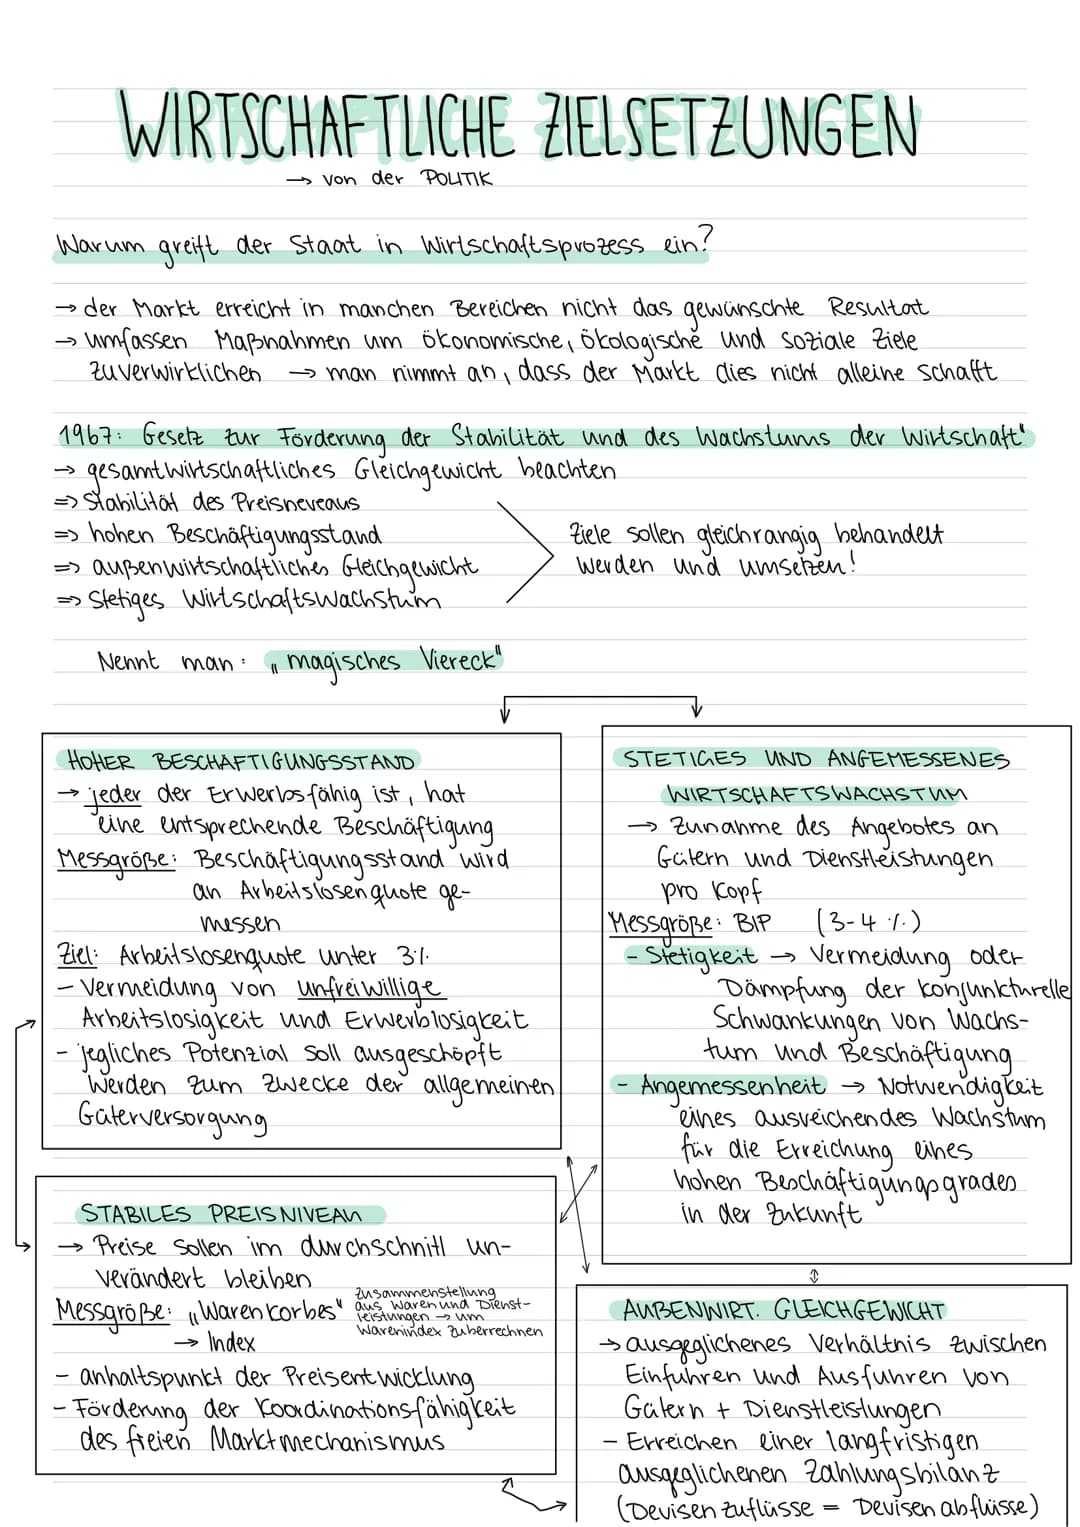 WIRTSCHAFTLICHE ZIELSETZUNGEN
→ von der POLITIK
Warum greift der Staat in Wirtschaftsprozess ein?
→ der Markt erreicht in manchen Bereichen nicht das gewünschte Resultat
→ umfassen Maßnahmen um ökonomische, ökologische und soziale Ziele
zuverwirklichen → man nimmt an, dass der Markt dies nicht alleine schafft
1967: Gesetz zur Förderung der Stabilität und des Wachstums der Wirtschaft"
→ gesamtwirtschaftliches Gleichgewicht beachten
=> Stabilität des Preisneveaus
=> hohen Beschäftigungsstand
=> außenwirtschaftliches Gleichgewicht
=> Stetiges Wirtschaftswachstum
Ziele sollen gleichrangig behandelt
werden und umsetzen!
Nennt man: „magisches Viereck"
HOHER BESCHÄFTIGUNGSSTAND
→ jeder der Erwerbsfähig ist, hat
eine entsprechende Beschäftigung
Messgröße: Beschäftigungsstand wird
an Arbeitslosenquote ge-
messen
Ziel: Arbeitslosenquote unter 3%
- Vermeidung von unfreiwillige
Arbeitslosigkeit und Erwerblosigkeit
- jegliches Potenzial soll ausgeschöpft
werden zum Zwecke der allgemeinen
Güterversorgung
STETIGES UND ANGEMESSENES
WIRTSCHAFTSWACHSTUM
→ Zunahme des Angebotes an
Gütern und Dienstleistungen
pro Kopf
Messgröße: BIP (3-4 %)
- Stetigkeit → Vermeidung oder
Dämpfung der konjunkturelle
Schwankungen von Wachs-
tum und Beschäftigung
- Angemessenheit → Notwendigkeit
eines ausreichendes Wachstum
für die Erreichung eines
hohen Beschäftigungsgrades
in der Zukunft
STABILES PREISNIVEAU
→ Preise sollen im durchschnitt un-
verändert bleiben
Messgröße: „Warenkorbes"
→ Index
Zusammenstellung
aus Waren und Dienst-
leistungen → um
Warenindex zuberrechnen
- anhaltspunkt der Preisentwicklung
- Förderung der Koordinationsfähigkeit
des freien Marktmechanismus
AUßENWIRT. GLEICHGEWICHT
→ ausgeglichenes Verhältnis zwischen
Einfuhren und Ausfuhren von
Gütern + Dienstleistungen
- Erreichen einer langfristigen
ausgeglichenen Zahlungsbilanz
(Devisenzuflüsse = Devisenabflüsse)